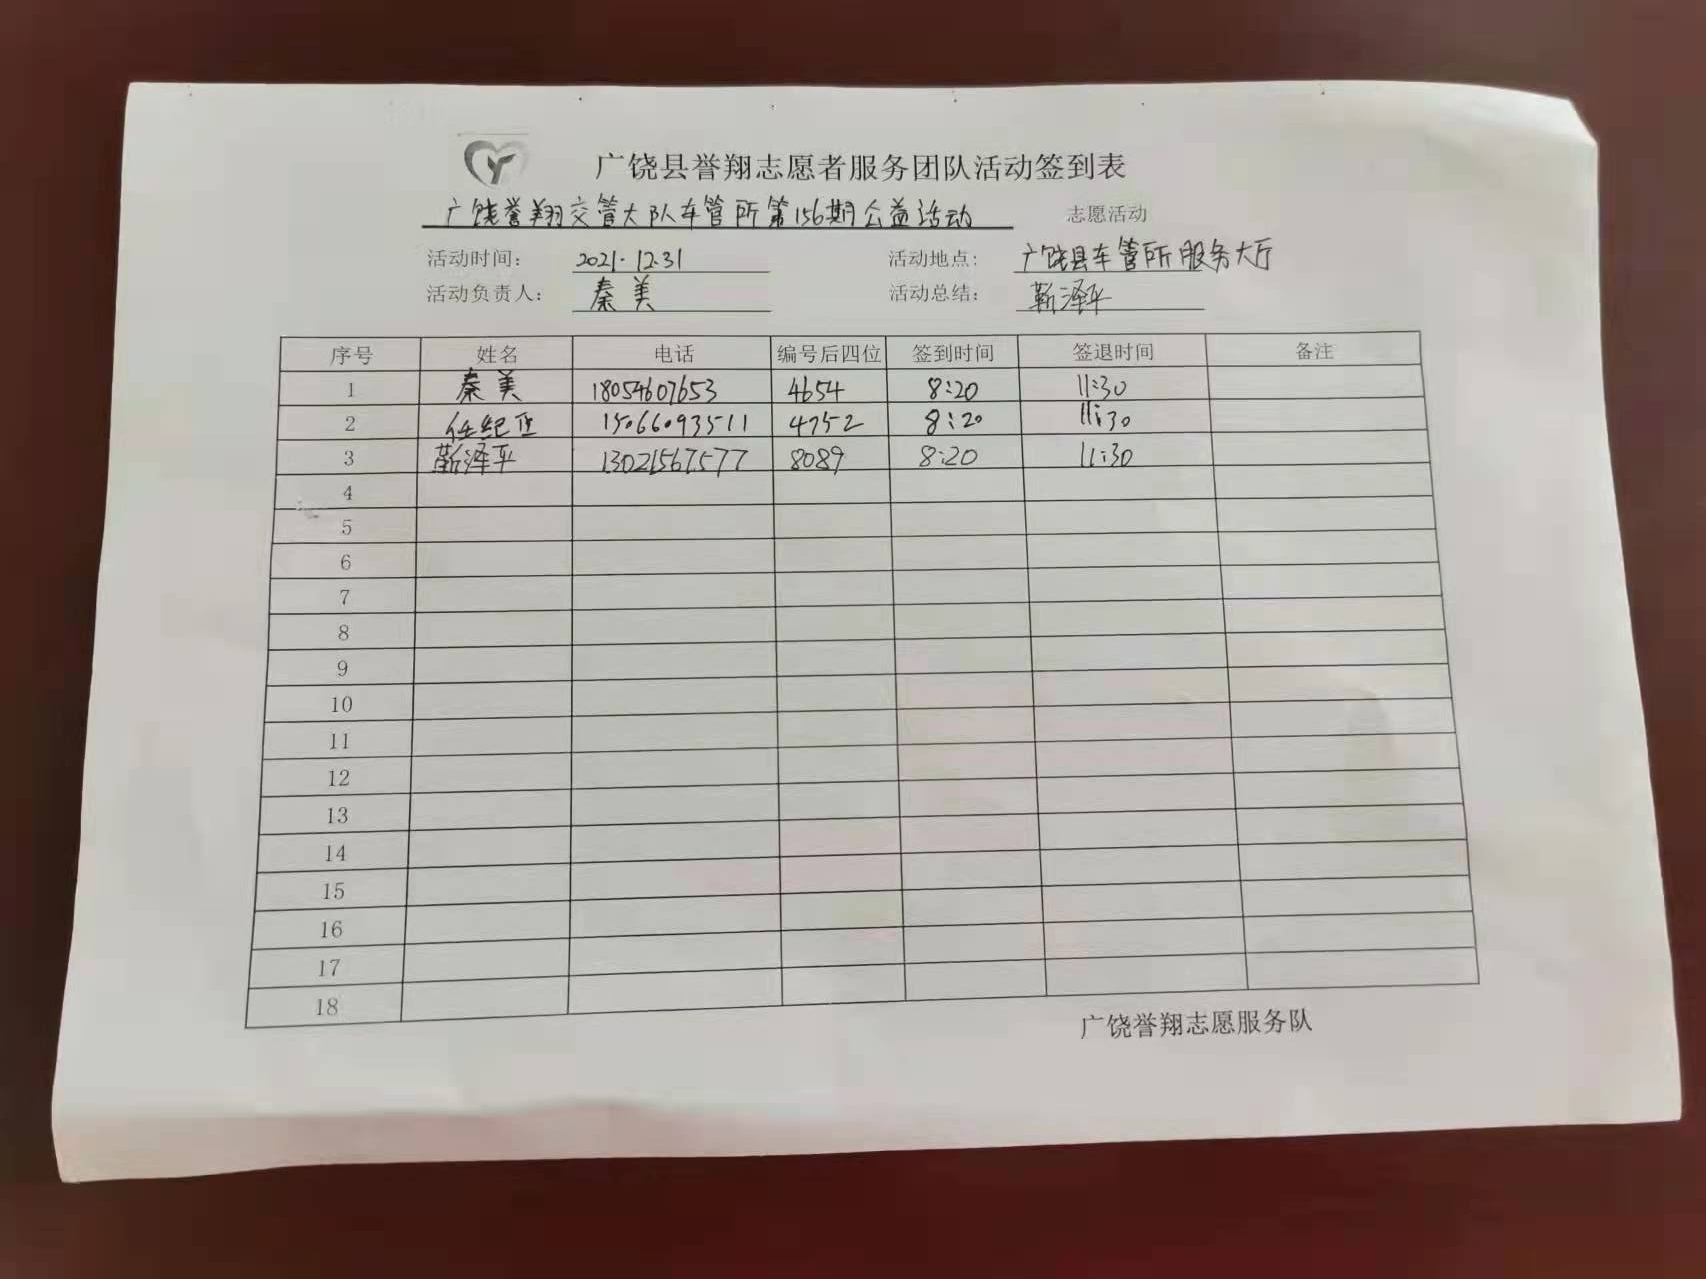 广饶县誉翔志愿者服务团队活动签到表
广饶誉翔交管大队车管所第156期公益活动 志愿活动
活动时间: 2021.12.31 活动地点: 广饶县车管所服务大厅
活动负责人: 秦美 活动总结: 靳泽平
序号 姓名 电话 编号后四位 签到时间 签退时间 备注
1 秦美 18054607653 4654 8:20 11:30
2 任纪正 15066093511 4752 8:20 11:30
3 靳泽平 13021567577 8089 8:20 11:30
4
5
6
7
8
9
10
11
12
13
14
15
16
17
18
广饶誉翔志愿服务队